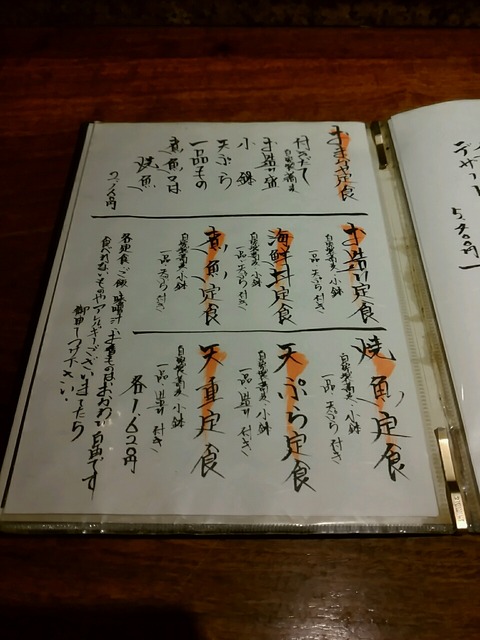 おまかせ定食
付だて
自家製蕎麦
お造り盛
小鉢
天ぷら
一品もの
煮魚又は
焼魚
お造り定食
自家製蕎麦 小鉢
一品 天ぷら付き
海鮮丼定食
自家製蕎麦 小鉢
一品 天ぷら付き
煮魚定食
自家製蕎麦 小鉢
一品 天ぷら付き
焼魚定食
自家製蕎麦 小鉢
一品 天ぷら付き
天ぷら定食
自家製蕎麦 小鉢
一品 お造り付き
天重定食
自家製蕎麦 小鉢
一品 お造り付き
各1,620円
各定食 ご飯 味噌汁
食べれないものやアレルギーございましたら
御申しつけ下さい
デザート